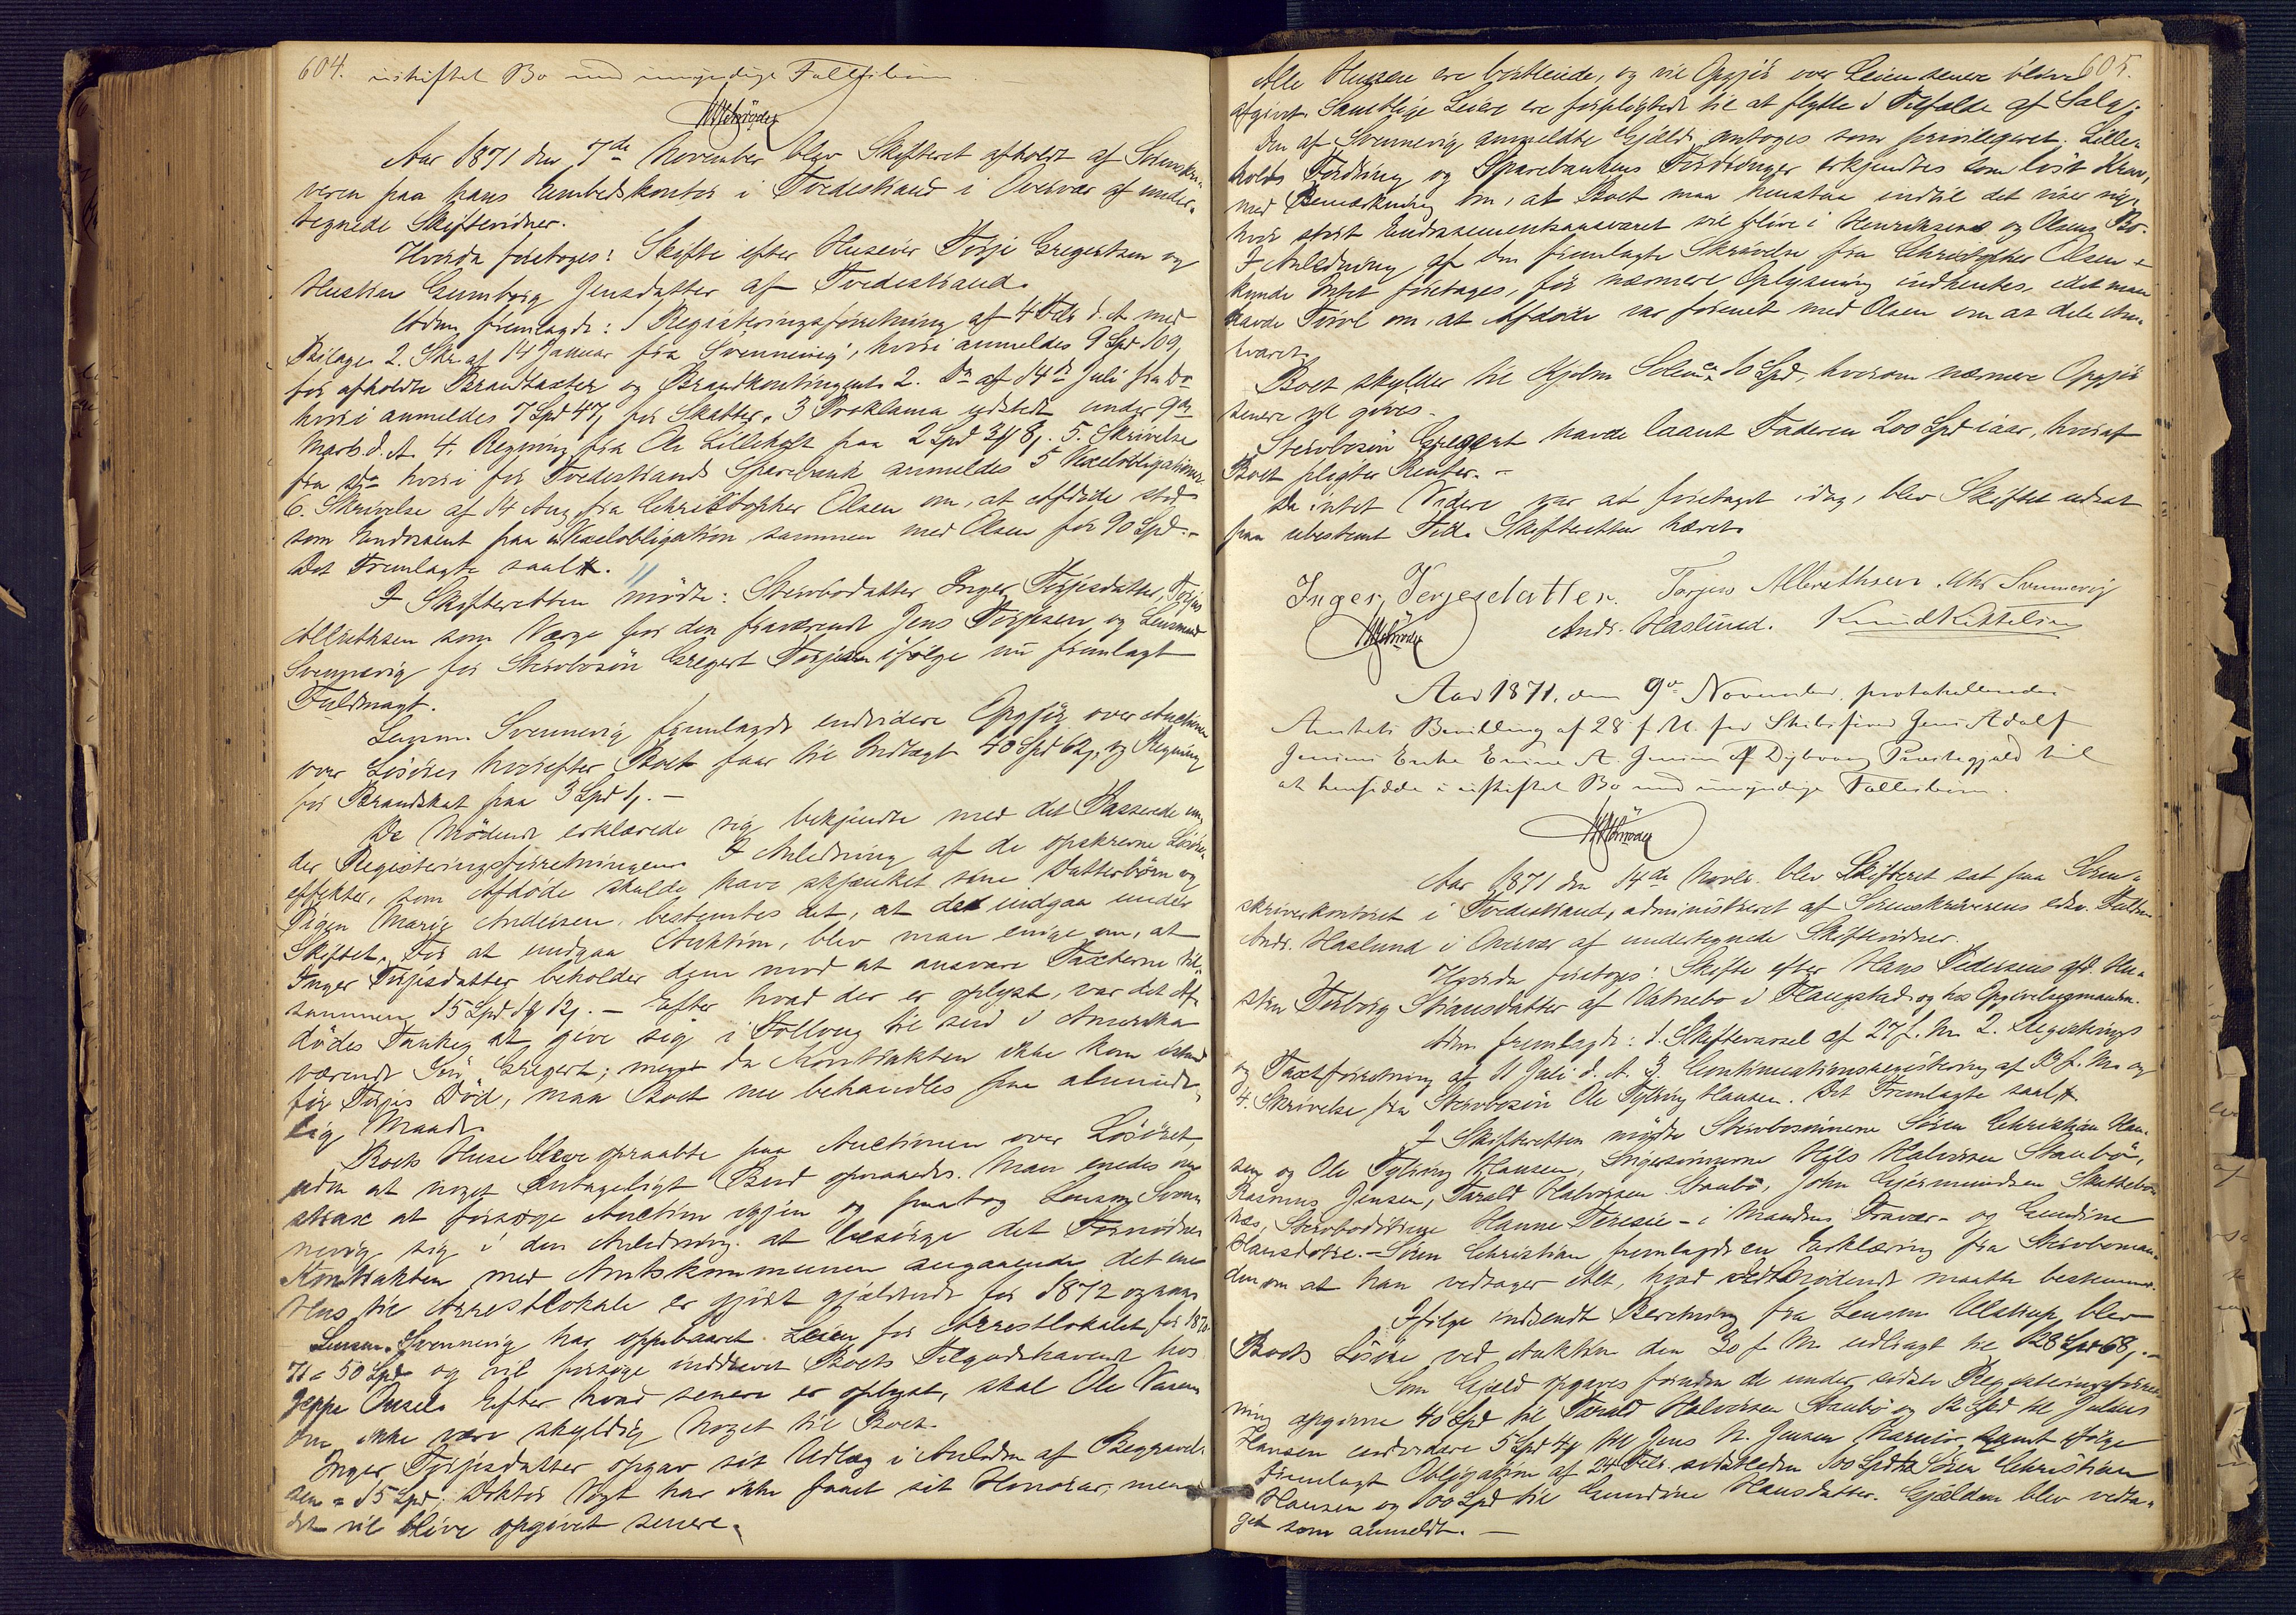 604. uskiftet Bo med umyndige Fællesbørn.
Aar 1871 den 7de November blev Skifteret afholdt af Sorenskri-
veren paa hans Embedskontor i Tvedestrand i Overvær af under-
tegnede Skiftevidner.
Hvorda foretoges: Skifte efter Huseier Torje Gregertsen og
Hustru Gunborg Jensdatter af Tvedestrand.
Adm. fremlagde: 1 Registreringsforretning af 4 Febr d. A. med
Bilage. 2. Skr. af 14 Januar fra Svennevig, hvori anmeldes 9 Spd 109
for afholdte Brandtaxter og Brandkontingent. 2. Do af 14de Juli fra Do
hvori anmeldes 7 Spd 47 for Skatter. 3 Proklama udstedt under 9de
Marts d. A. 4. Regning fra Ole Lilleholt paa 2 Spd 3 8. 5. Skrivelse
fra Do hvori for Tvedestrands Sparebank anmeldes 5 Vexelobligationer
6. Skrivelse af 14 Aug fra Christopher Olsen om, at Afdøde stod
som Endossent paa en Vexelobligation sammen med Olsen for 90 Spd. -
Det Fremlagte saal.
I Skifteretten mødte: Stervbodatter Inger Torjesdatter, Torjus
Albrethsen som Værge for den fraværende Jens Torjesen og Lensmand
Svennevig for Stervbosøn Gregert Torjesen ifølge nu fremlagt
Fuldmagt.
Lensm. Svennevig fremlagde endvidere Opgjør over Auctionen
over Løsøret hvorefter Boet faar til Indtægt 40 Spd 62, og Regning
for Brandskat paa 3 Spd 1. -
De Mødende erklærede sig bekjendte med det Passerede un-
der Registreringsforretningen. I Anledning af de opskrevne Løsøre-
effekter, som Afdøde skulde have skjænket sine Datterbørn og
Pigen Marie Andersen, bestemtes det, at de indgaa under
Skiftet. For at undgaa Auktion, blev man enige om, at
Inger Torjesdatter beholder dem mod at ansvare Taxterne til-
sammen 15 Spd 1 12. - Efter hvad der er oplyst, var det Af-
dødes Tanke at give sig i Folloug til sin i Amerika
værende Søn Gregert; men da Kontrakten ikke kom istand
før Torjes Død, maa Boet nu behandles paa alminde-
lig Maade.
Boets Huse bleve opraabte paa Auctionen over Løsøret
uden at noget antageligt Bud opnaaedes. Man enedes om
strax at forsøge Auction igjen og paatog Lensm. Sven-
nevig sig i den Anledning at besørge det Fornødne.
Kontrakten med Amtskommunen angaaende det ene
Hus til Arrestlokale er gjort gjældende for 1872 ogsaa.
Lensm. Svennevig har oppebaaret Leien for Arrestlokalet for 1870-
71 = 50 Spd og vil forsøge inddrevet Boets Tilgodehavende hos
Jeppe Efter hvad senere er oplyst, skal Ole
ikke være skyldig Noget til Boet.
Inger Torjesdatter opgav sit Udlæg i Anledn. af Begravel-
sen = 15 Spd; Doktor Vogt har ikke faaet sit Honorar, men
det vil blive opgivet senere.
605.
Alle Husene ere bortleiede, og vil Opgjør over Leien senere blive
afgivet. Samtlige Leiere ere forpligtede til at flytte i Tilfælde af Salg.
Den af Svennevig anmeldte Gjæld antoges som privilegeret. Lille-
holts Fordring og Sparebankens Fordringer erkjendtes som løst Krav,
med Bemærkning om, at Boet maa henstaa indtil det viser sig,
hvor stort Endossementsansvaret vil blive i Henriksens og Olsens Bo.
I Anledning af den fremlagte Skrivelse fra Christopher Olsen
kunde Intet foretages, før nærmere Oplysning indhentes, idet man
havde Tvivl om, at Afdøde var forenet med Olsen om at dele An-
svaret.
Boet skylder til Kjøbm. 16 Spd, hvorom nærmere Opgjør
senere vil gives.
Stervbosøn Gregert havde laant Faderen 200 Spd iaar, hvoraf
Boet pligter Renter. -
Da intet Videre var at foretaget idag, blev Skiftet udsat
paa ubestemt Tid. Skifteretten hævet.
Inger, Terjesdatter. Torjus Albrethsen. Svennevig
Andr. Haslund. Knud Kittelsen
Aar 1871, den 9de November, protokolleredes
Amtets Bevilling af 28 f. M. for Skibsfører Jens Adolf
Jensens Enke A. Jensen af Dybvaag Præstegjeld til
at hensidde i uskiftet Bo med umyndige Fællesbørn.
Aar 1871 den 14de Novbr. blev Skifteret sat paa Soren-
skriverkontoret i Tvedestrand, administreret af Sorenskriverens edsv. Fuldm.
Andr. Haslund i Overvær af undertegnede Skiftevidner.
Hvorda foretoges: Skifte efter Hans Pedersens afd. Hu-
stru Torborg af Vatnebo i Flangstad og hos Opgivelsesmanden.
Adm. fremlagde: 1. Skiftevarsel af 27 f. M. 2. Registrerings
og Taxtforretning af 11 Juli d. A. 3. Continuationsregistrering af f. M. og
4. Skrivelse fra Stervbosøn Ole Hansen. Det Fremlagte saal.
I Skifteretten mødte Stervbosønnerne Søren Christian Han-
sen og Ole Hansen, Svigersønnerne Nils Halvorsen Staubø,
Rasmus Jensen, Tarald Halvorsen Staubø, John Gjermundsen
Stervbodøttrene Hanne Teresie - i Mandens Fravær - og Gundine
Hansdøttre. - Søren Christian fremlagde en Erklæring fra Stervboman-
den om at han vedtager Alt, hvad de Mødende maatte bestemme.
Ifølge indsendt Beretning fra Lensm. Ulstrup blev
Boets Løsøre ved Auktion den 30 f. M. udbragt til 128 Spd 68. -
Som Gjæld opgaves foruden de under sidste Registreringsforret-
ning opgivne 40 Spd til Tarald Halvorsen Staubø og 12 Spd til Julius
Hansen endvidere 5 Spd 4 til Jens N. Jensen samt ifølge
fremlagt Obligation af 24 Febr. 100 Spd til Søren Christian
Hansen og 100 Spd til Gundine Hansdatter. Gjælden blev vedta-
get som anmeldt. -